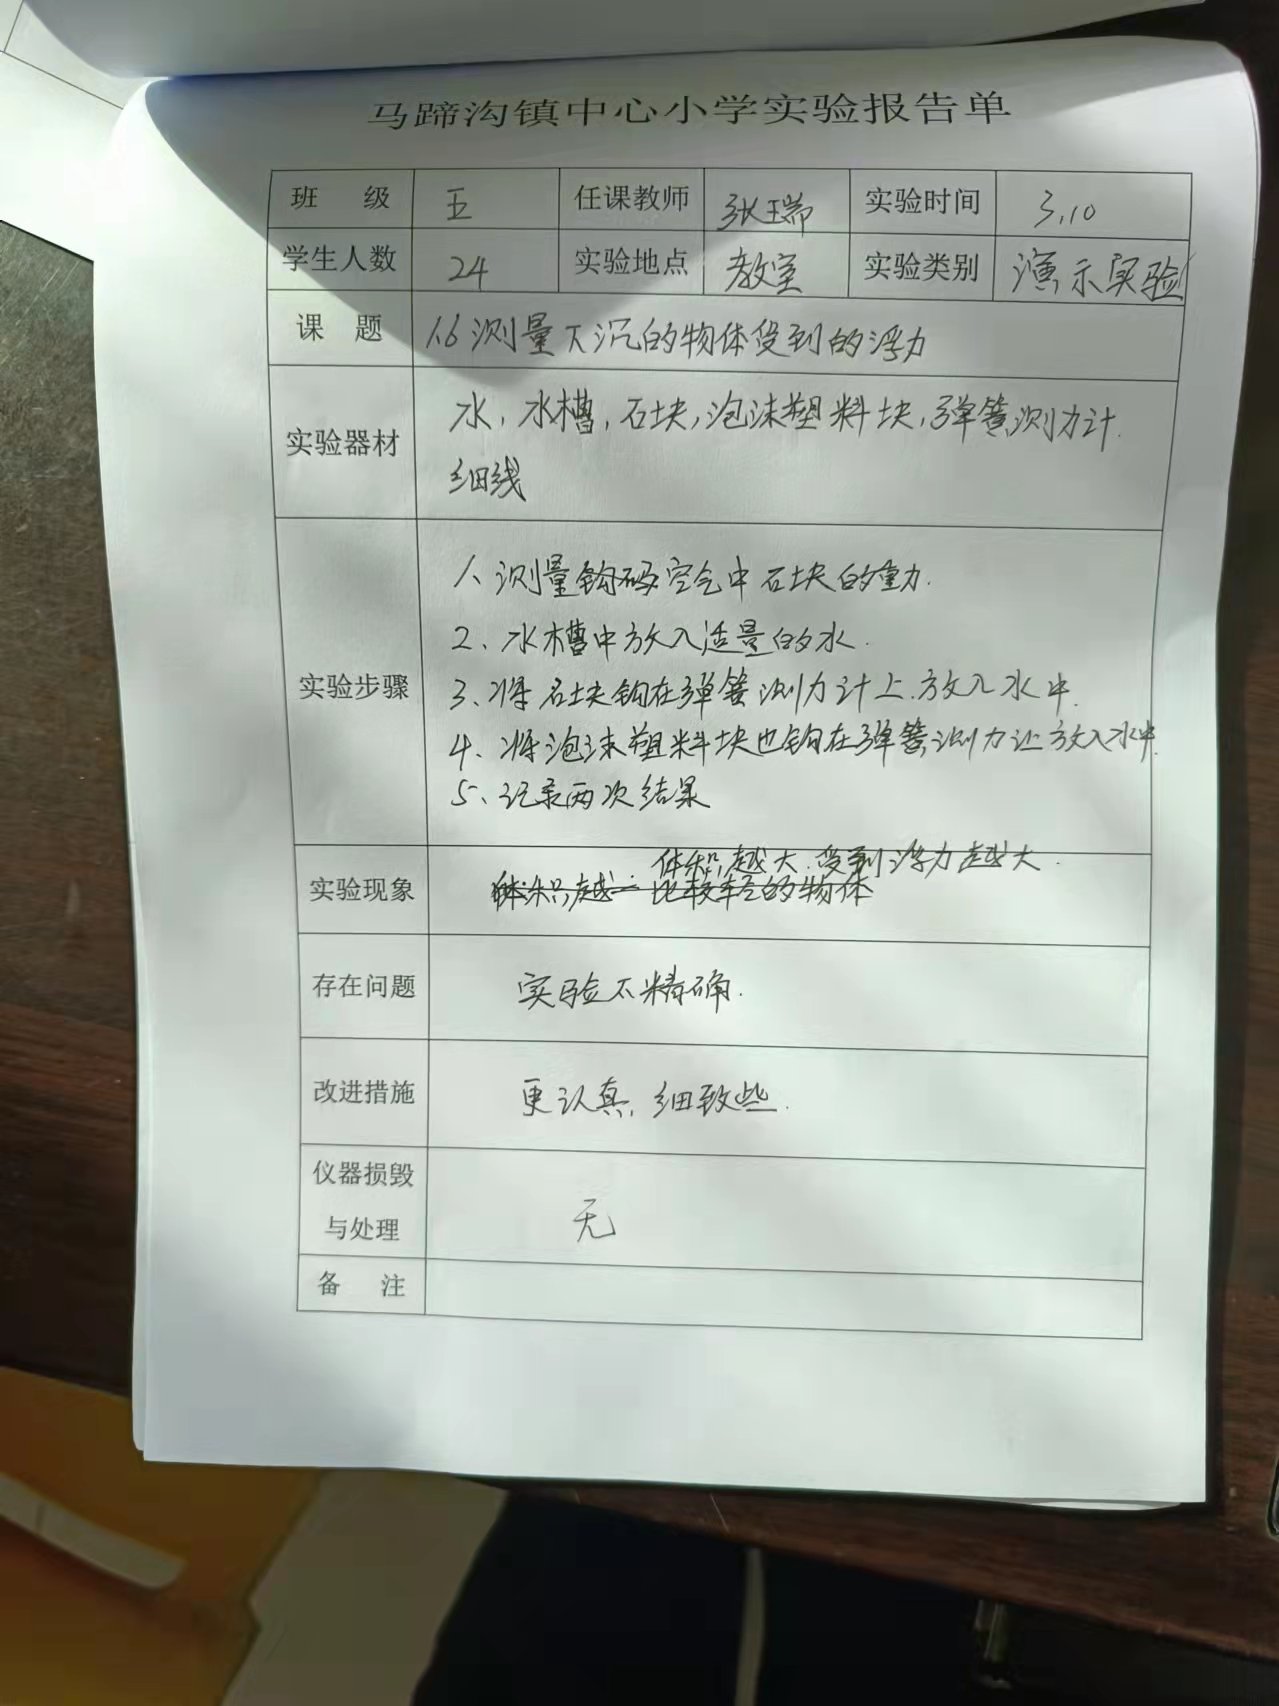 马蹄沟镇中心小学实验报告单
班 级 五 任课教师 张瑞 实验时间 3.10
学生人数 24 实验地点 教室 实验类别 演示实验
课 题 1.6 测量下沉的物体受到的浮力
实验器材 水,水槽,石块,泡沫塑料块,弹簧测力计.
细线
实验步骤
1、测量钩码空气中石块的重力.
2、水槽中放入适量的水.
3、将石块钩在弹簧测力计上.放入水中.
4、将泡沫塑料块也钩在弹簧测力计放入水中.
5、记录两次结果
体积越大.受到浮力越大.
实验现象 体积越 比较轻的物体
存在问题 实验不精确.
改进措施 更认真,细致些.
仪器损毁
与处理 无
备 注